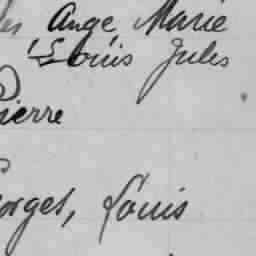 les Ange, Marie
Louis Jules
Pierre
Georges, Louis